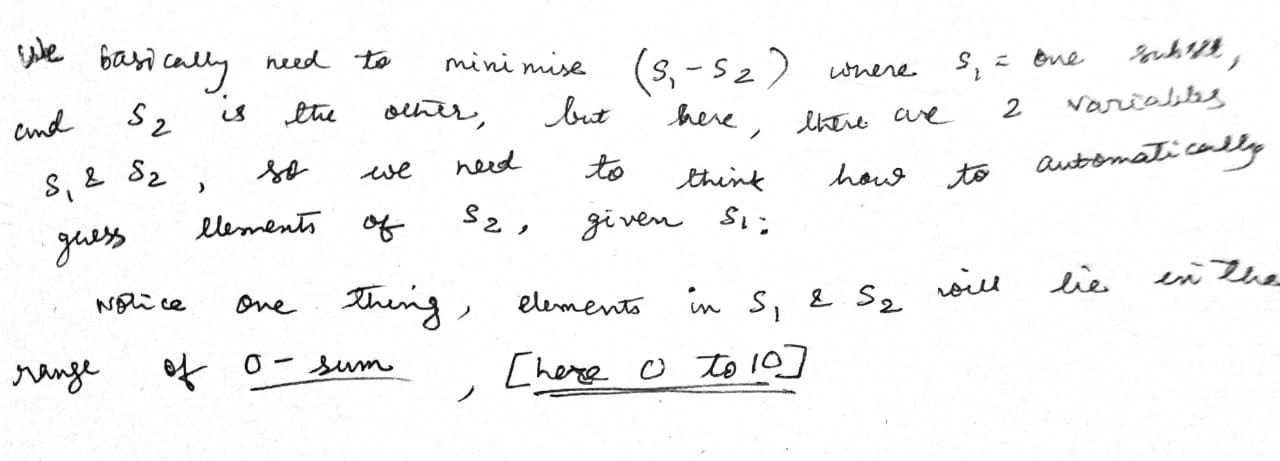 We basically need to minimise (S₁ - S₂) where S₁ = one subset,
and S₂ is the other, but here, there are 2 variables
S₁ & S₂, so we need to think how to automatically
guess elements of S₂, given S₁:
Notice one thing, elements in S₁ & S₂ will lie in the
range of 0 - sum, [here 0 to 10]